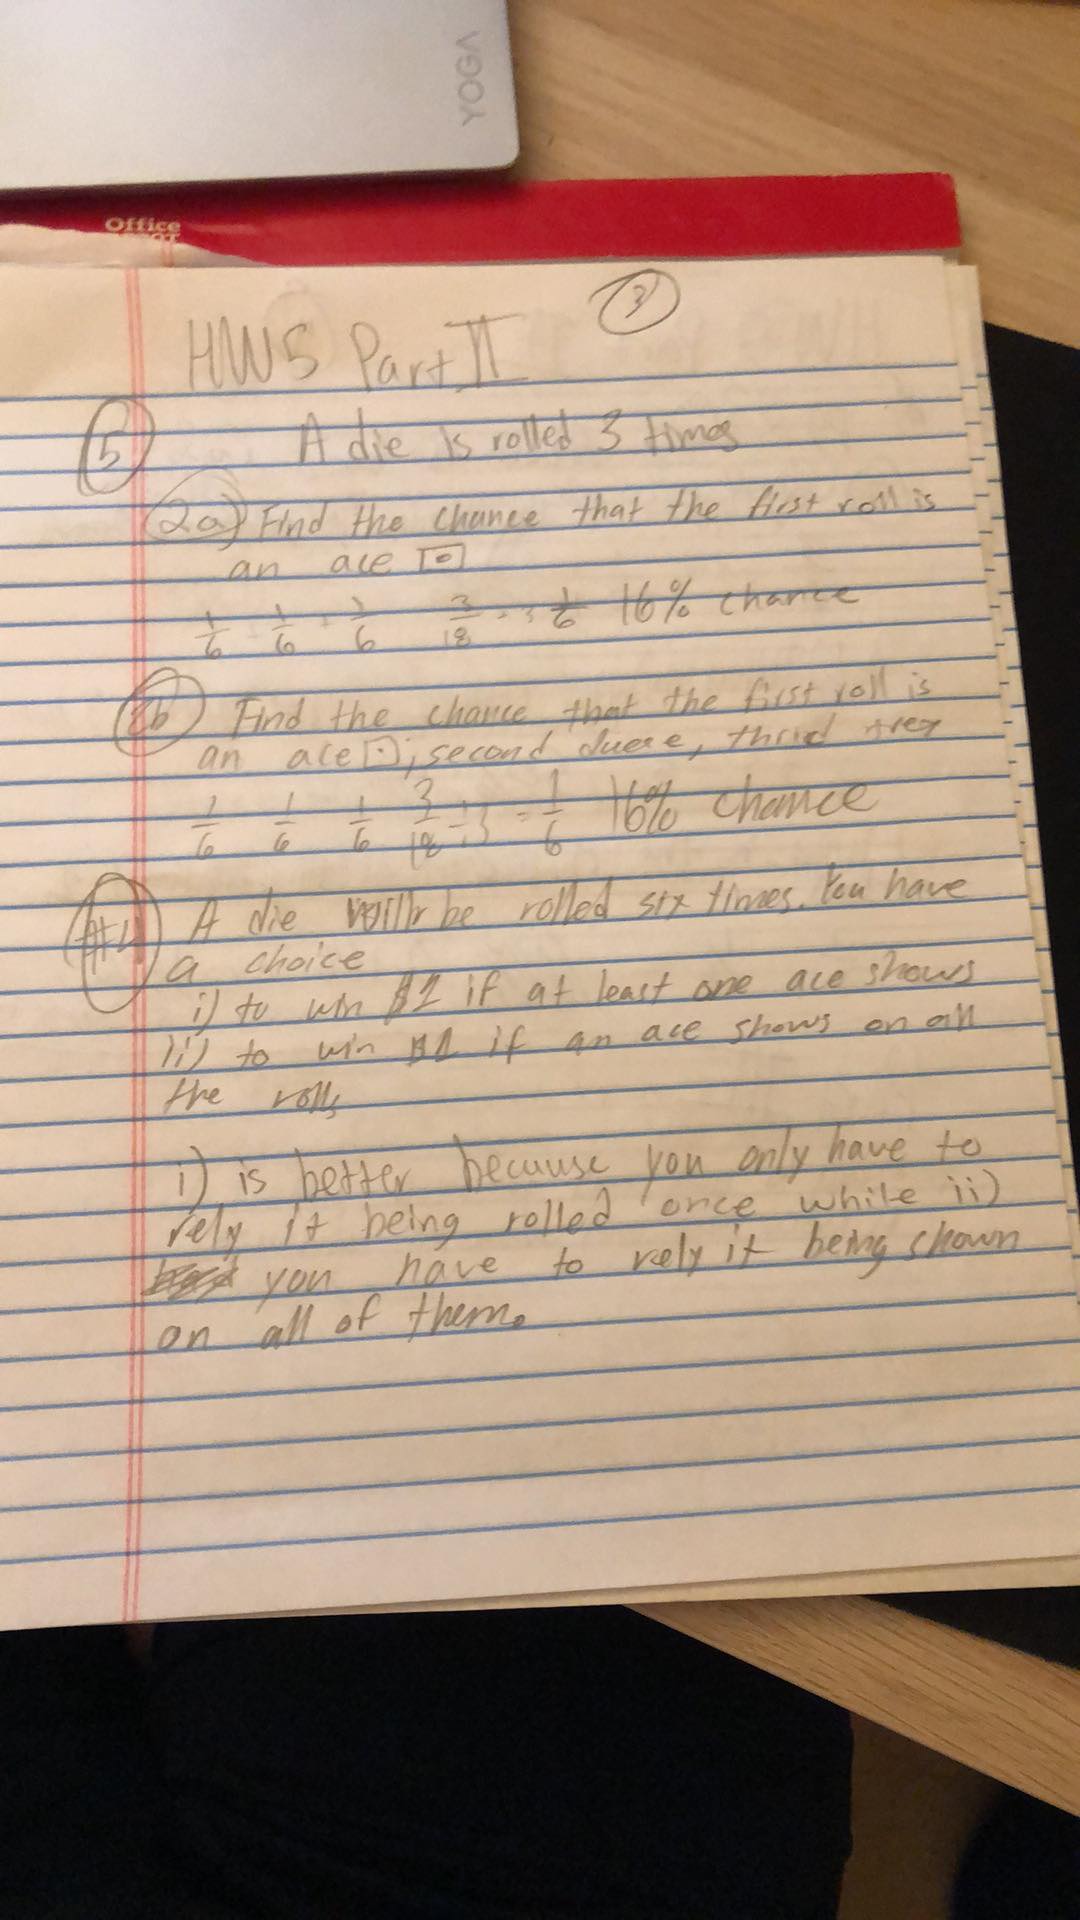 YOGA
Office
③
HW5 Part II
⑤ A die is rolled 3 times
2a) Find the chance that the first roll is
an ace ⚀
1/6 1/6 1/6 3/18 ÷ 3 1/6 16% chance
2b) Find the chance that the first roll is
an ace ⚀, second duece, thrid trex
1/6 1/6 1/6 3/18 ÷ 3 = 1/6 16% chance
#4 A die will be rolled six times. You have
a choice
i) to win $1 if at least one ace shows
ii) to win $1 if an ace shows on all
the rolls
i) is better because you only have to
rely it being rolled once while ii)
you have to rely it being shown
on all of them.